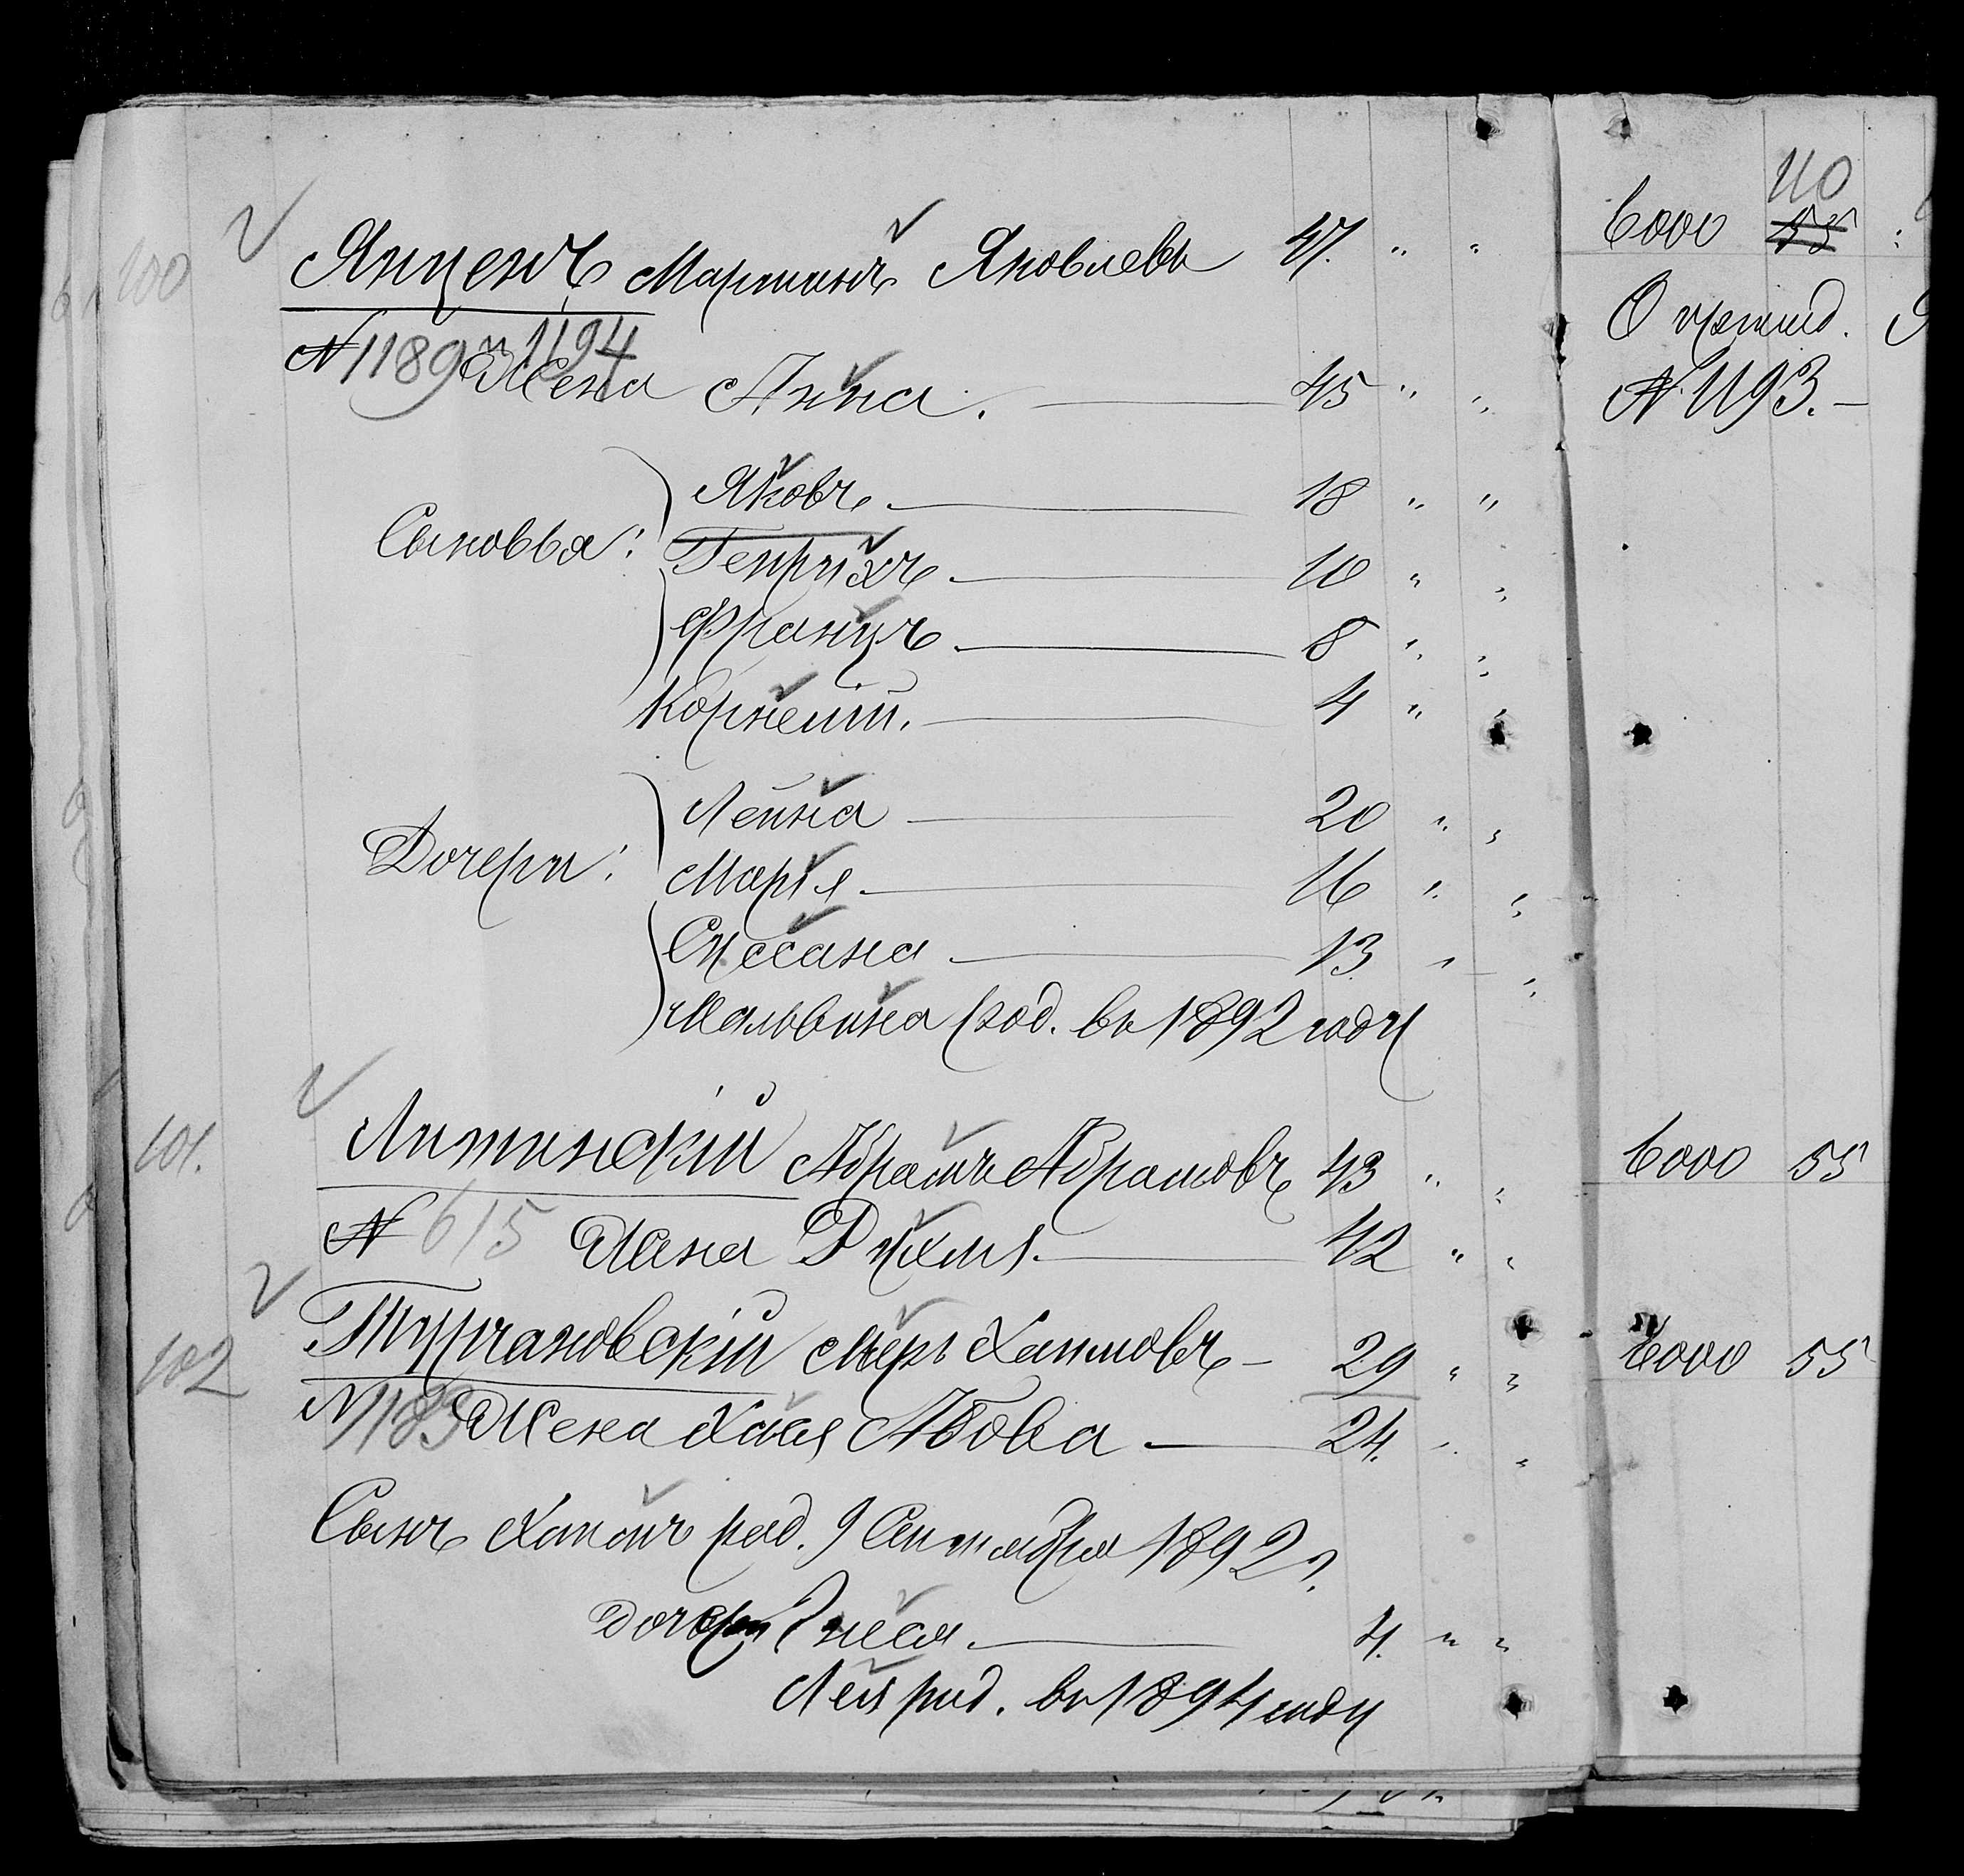 110
100 Янценъ Мартинъ Яковлевъ 47. " " 6000 55
№ 1189 и 1194 О отмид.
Жена Анна. — 45 " " № 1193. —
Яковъ — 18 " "
Сыновья: Генрихъ — 10 " "
Францъ — 8 " "
Корней. — 4 " "
Лейна — 20 " "
Дочери: Марья — 16 " "
Сусана — 13 " "
Мальвина род. въ 1892 году
101. Литинскій Абрамъ Абрамовъ 43 " " 6000 55
№ 615 Жена Рухля. — 42 " "
102 Турчановскій Меръ Хаимовъ — 29 " " 6000 55
№ 1183 Жена Хася Абова — 24. " "
Сынъ Хаимъ род. 9 Сентября 1892 г.
Дочери — 4. " "
Лея род. въ 1894 году